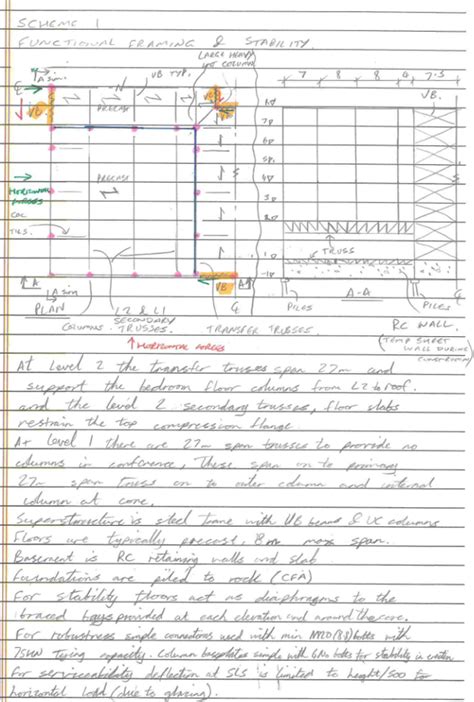 SCHEME 1
FUNCTIONAL FRAMING & STABILITY.
LARGE HEAVY
COLUMN
A Sim.
UB TYP.
VB
PRECAST
PRECAST
HORIZONTAL
FORCES
COL
TIES.
A
A Sim
PLAN
L2 & L1
SECONDARY
TRUSSES.
COLUMNS
TRANSFER TRUSSES.
VB
A
7 8 8 4 7.5
VB.
TRUSS
PILES
A-A
PILES
RC WALL.
(TEMP SHEET
WALL DURING
CONSTRUCTION)
↑ HORIZONTAL FORCES
At Level 2 the transfer trusses span 27m and
support the bedroom floor columns from L2 to roof.
and the level 2 secondary trusses, floor slabs
restrain the top compression flange.
At level 1 there are 27m span trusses to provide no
columns in conference, These span on to primary
27m span truss on to outer column and internal
column at core.
Superstructure is steel frame with UB beams & UC columns
Floors are typically precast, 8m max span.
Basement is RC retaining walls and slab
Foundations are piled to rock (CFA)
For stability floors act as diaphragms to the
braced bays provided at each elevation and around the core.
For robustness simple connections used with min M20 (8.8) bolts with
75kN Tying capacity. Column baseplates simple with 6No bolts for stability in
For serviceability deflection at SLS is limited to height/500 for
horizontal load (due to glazing).